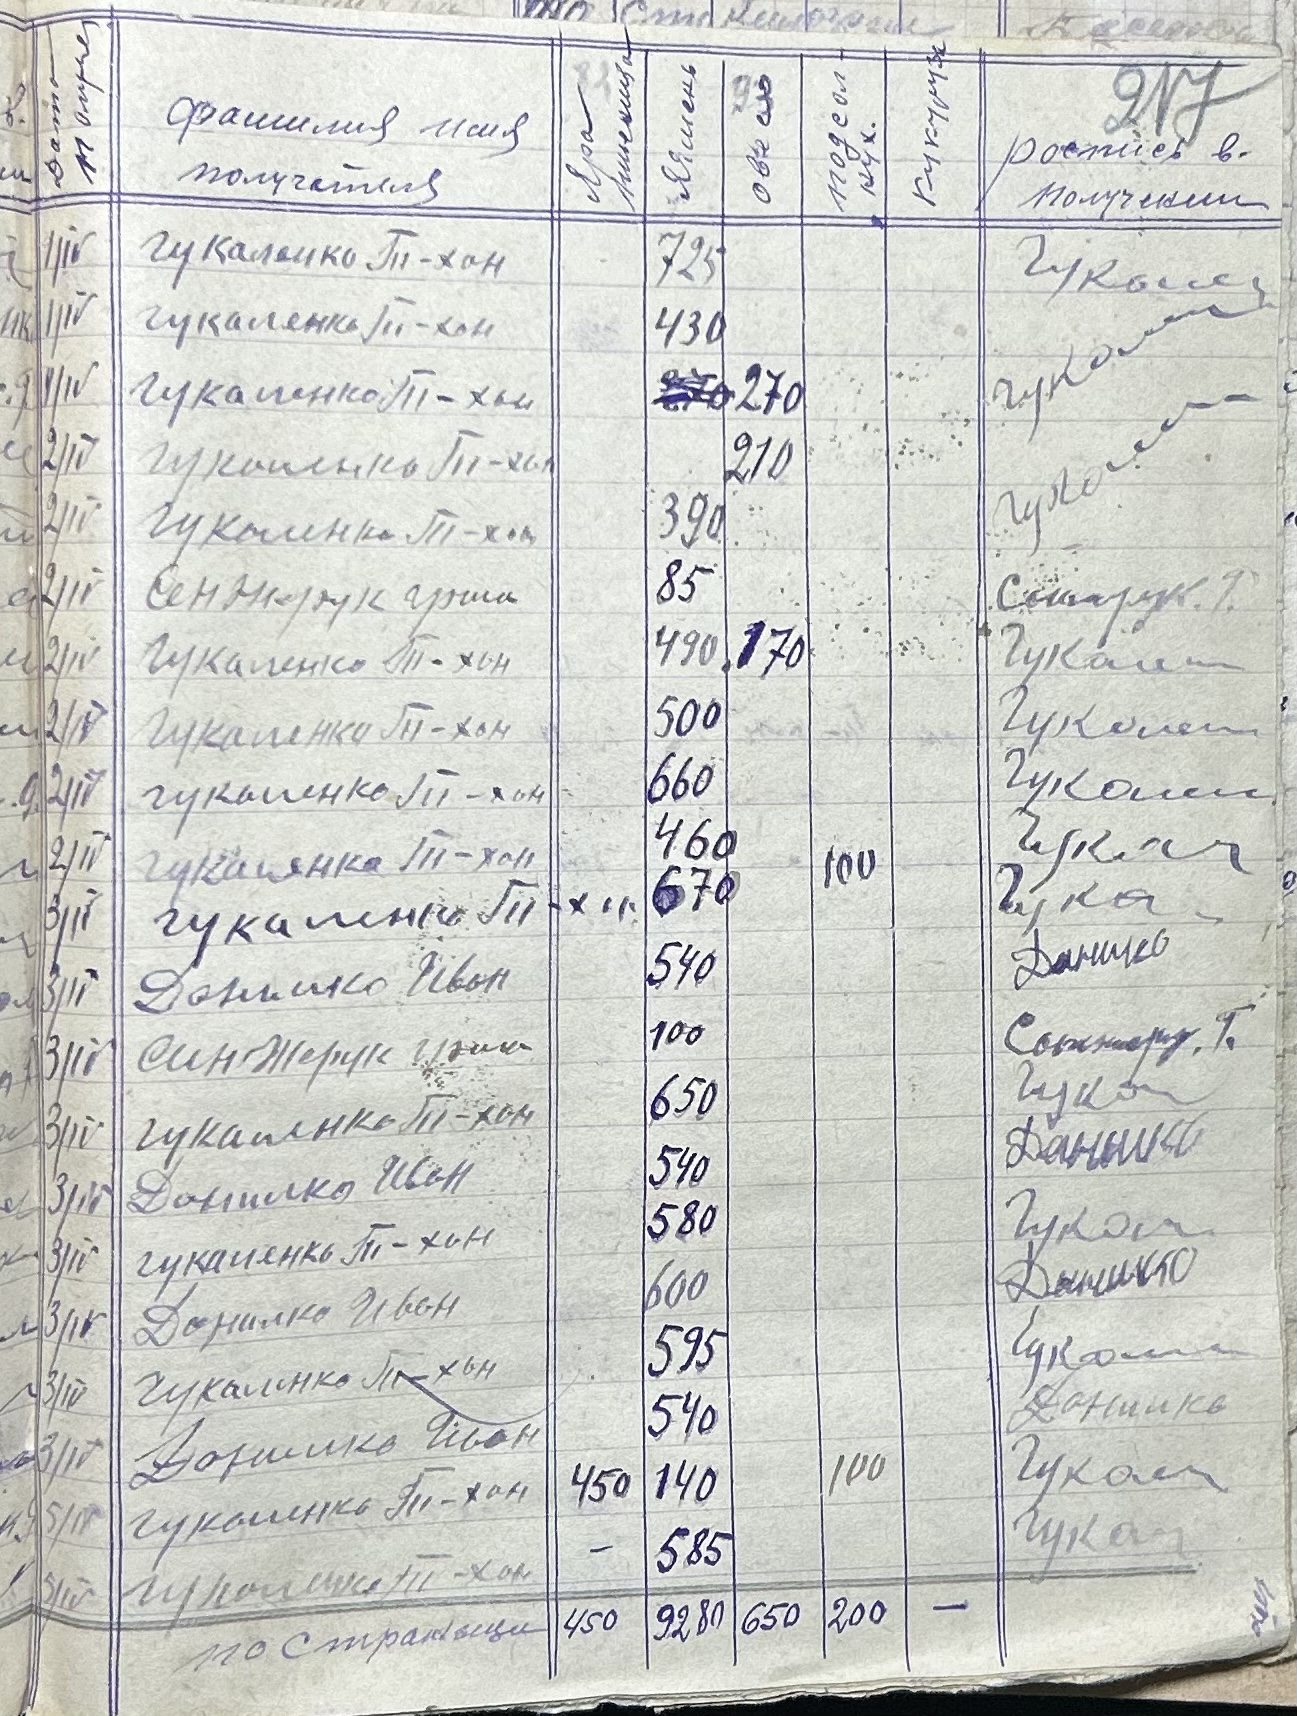 217
Дата получ. фамилия имя получателя Яра пшеница Ячмень овес подсолнух. Кукуруза роспись в получении
1/IV Гукаленко Ти-хон 725 Гукален
1/IV Гукаленко Ти-хон 430 Гукален
1/IV Гукаленко Ти-хон 270 270
2/IV Гукаленко Ти-хон 210 Гукален
2/IV Гукаленко Ти-хон 390
2/IV Сенжерук Гриша 85 Г.
2/IV Гукаленко Ти-хон 490 170 Гукален
2/IV Гукаленко Ти-хон 500 Гукален
2/IV Гукаленко Ти-хон 660 Гукален
2/IV Гукаленко Ти-хон 460 100 Гукал
3/IV Гукаленко Ти-хон 670 Гука
3/IV Данилко Иван 540 Данилко
3/IV Синжерук Гриша 100 Г.
3/IV Гукаленко Ти-хон 650 Гукал
3/IV Данилко Иван 540 Данилко
3/IV Гукаленко Ти-хон 580 Гукал
3/IV Данилко Иван 600 Данилко
3/IV Гукаленко Ти-хон 595 Гукал
3/IV Данилко Иван 540 Данилко
5/IV Гукаленко Ти-хон 450 140 100 Гукал
5/IV Гукаленко Ти-хон – 585 Гукал
по странице 450 9280 650 200 –